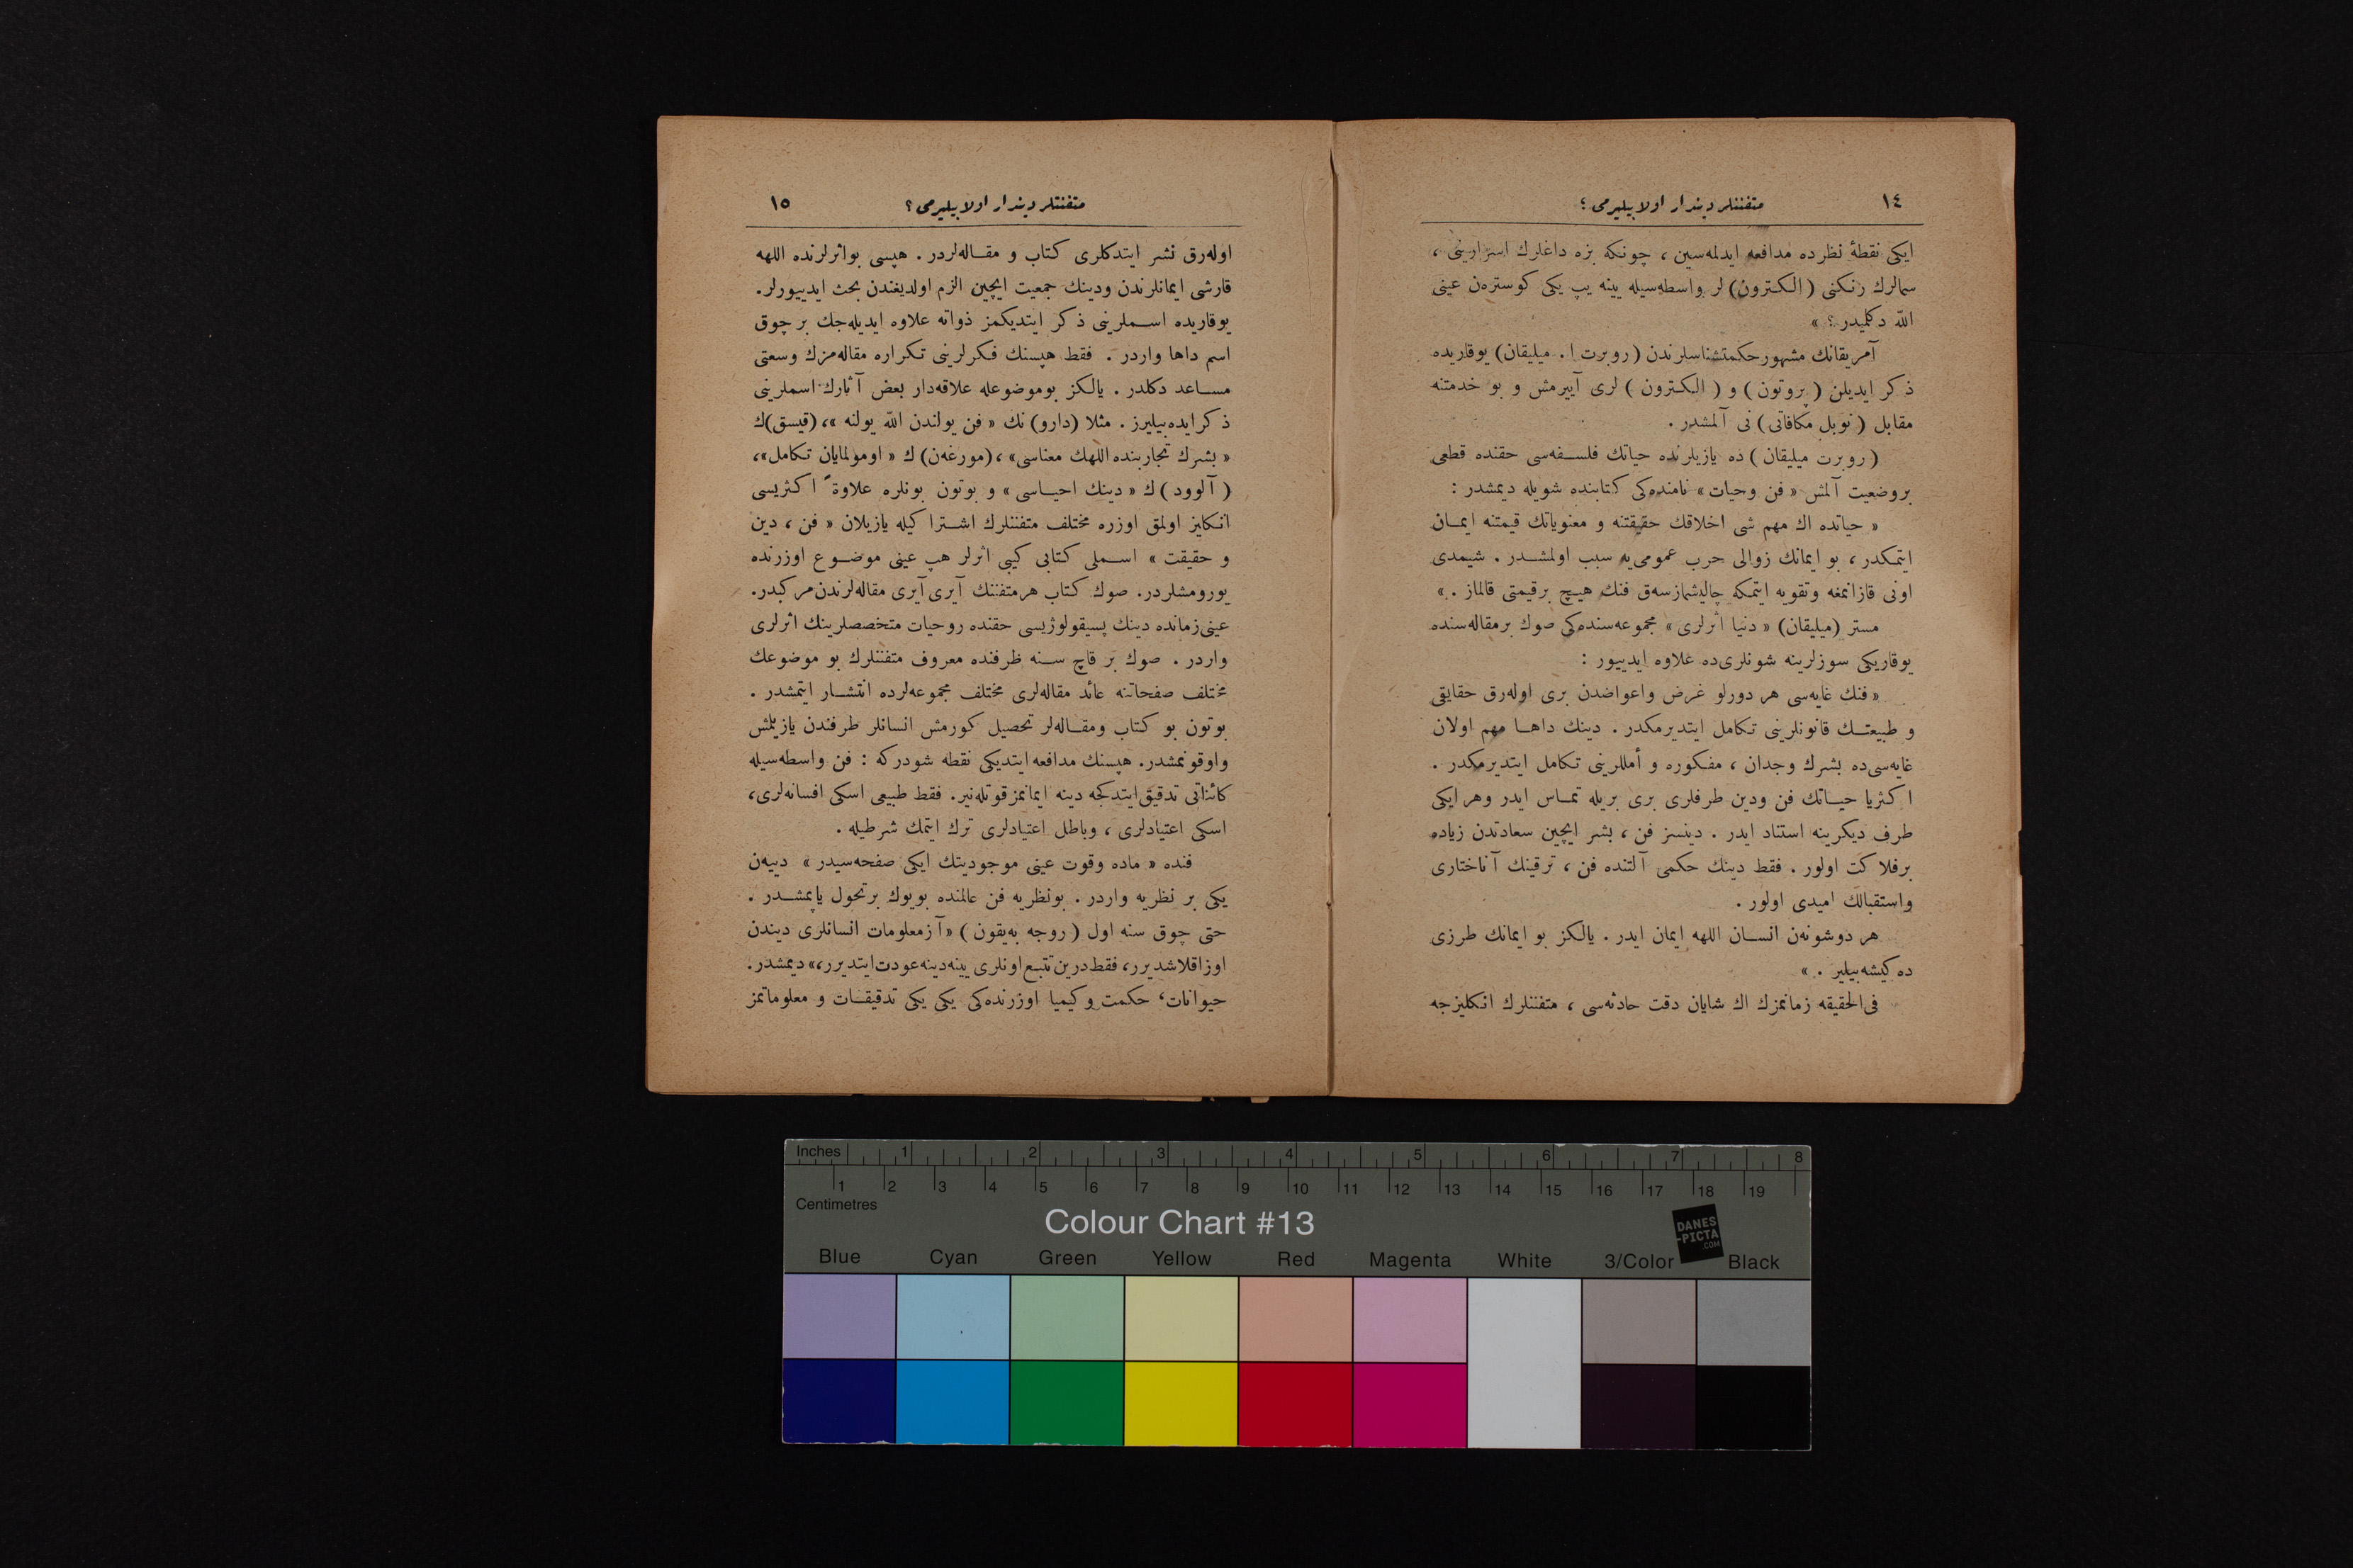 ١٤ متفننلر ديندار اولابيليرمى ؟
ايكى نقطهٔ نظرده مدافعه ايدلمه‌سين ، چونكه بزه داغلرك اسرارينى ،
سمالرك رنكنى (الكترون) لر واسطه‌سيله يينه يپ يكى كوستره‌ن عينى
اللّه دكليدر ؟ »
آمريقانك مشهورحكمتشناسلرندن (روبرت ا . ميليقان) يوقاريده
ذكر ايديلن ( پروتون ) و ( الكترون ) لرى آييرمش و بو خدمتنه
مقابل ( نوبل مكافاتى ) نى آلمشدر .
( روبرت ميليقان ) ده يازيلرنده حياتك فلسفه‌سى حقنده قطعى
بروضعيت آلمش « فن وحيات » نامنده‌كى كتابنده شويله ديمشدر :
« حياتده اك مهم شى اخلاقك حقيقتنه و معنوياتك قيمتنه ايمان
ايتمكدر ، بو ايمانك زوالى حرب عمومى‌يه سبب اولمشدر . شيمدى
اونى قازانمغه وتقويه ايتمكه چاليشمازسه‌ق فنك هيچ برقيمتى قالماز . »
مستر (ميليقان) « دنيا اثرلرى » مجموعه‌سنده‌كى صوك برمقاله‌سنده
يوقاريكى سوزلرينه شونلرى‌ده علاوه ايدييور :
« فنك غايه‌سى هر دورلو غرض واعواضدن برى اوله‌رق حقايقى
و طبيعتك قانونلرينى تكامل ايتديرمكدر . دينك داها مهم اولان
غايه‌سى‌ده بشرك وجدان ، مفكوره و أمللرينى تكامل ايتديرمكدر .
اكثريا حياتك فن ودين طرفلرى برى بريله تماس ايدر وهر ايكى
طرف ديكرينه استناد ايدر . دينسز فن ، بشر ايچين سعادتدن زياده
برفلاكت اولور . فقط دينك حكمى آلتنده فن ، ترقينك آناختارى
واستقبالك اميدى اولور .
هر دوشونه‌ن انسان اللهه ايمان ايدر . يالكز بو ايمانك طرزى
ده‌كيشه‌بيلير . »
فى‌الحقيقه زمانمزك اك شايان دقت حادثه‌سى ، متفننلرك انكليزجه
متفننلر ديندار اولابيليرمى ؟ ١٥
اوله‌رق نشر ايتدكلرى كتاب و مقاله‌لردر . هپسى بواثرلرنده اللهه
قارشى ايمانلرندن ودينك جمعيت ايچين الزم اولديغندن بحث ايدييورلر.
يوقاريده اسملرينى ذكر ايتديكمز ذواته علاوه ايديله‌جك بر چوق
اسم داها واردر . فقط هپسنك فكرلرينى تكراره مقاله‌مزك وسعتى
مساعد دكلدر . يالكز بوموضوعله علاقه‌دار بعض آثارك اسملرينى
ذكرايده‌بيليرز . مثلا (دارو) نك « فن يولندن اللّه يولنه »، (قيسق)ك
« بشرك تجاربنده اللهك معناسى» ، (مورغه‌ن) ك « اومولمايان تكامل»،
( آلوود ) ك « دينك احياسى » و بوتون بونلره علاوةً اكثريسى
انكليز اولمق اوزره مختلف متفننلرك اشتراكيله يازيلان « فن ، دين
و حقيقت » اسملى كتابى كيبى اثرلر هپ عينى موضوع اوزرنده
يورومشلردر. صوك كتاب هرمتفننك آيرى آيرى مقاله‌لرندن مركبدر.
عينى‌زمانده دينك پسيقولوژيسى حقنده روحيات متخصصلرينك اثرلرى
واردر . صوك بر قاچ سنه ظرفنده معروف متفننلرك بو موضوعك
مختلف صفحاتنه عائد مقاله‌لرى مختلف مجموعه‌لرده انتشار ايتمشدر .
بوتون بو كتاب ومقاله‌لر تحصيل كورمش انسانلر طرفندن يازيلمش
واوقونمشدر. هپسنك مدافعه ايتديكى نقطه شودركه : فن واسطه‌سيله
كائناتى تدقيق ايتدكجه دينه ايمانمز قوتله‌نير. فقط طبيعى اسكى افسانه‌لرى،
اسكى اعتيادلرى ، وباطل اعتيادلرى ترك ايتمك شرطيله .
فنده « ماده وقوت عينى موجوديتك ايكى صفحه‌سيدر » دييه‌ن
يكى بر نظريه واردر . بونظريه فن عالمنده بويوك برتحول ياپمشدر .
حتى چوق سنه اول ( روجه به‌يقون ) « آزمعلومات انسانلرى ديندن
اوزاقلاشديرر، فقط درين تتبع اونلرى يينه دينه عودت ايتديرر،» ديمشدر.
حيوانات، حكمت وكيميا اوزرنده‌كى يكى يكى تدقيقات و معلوماتمز
Inches 1 2 3 4 5 6 7 8
1 2 3 4 5 6 7 8 9 10 11 12 13 14 15 16 17 18 19
Centimetres
Colour Chart #13
DANES
-PICTA
.COM
Blue Cyan Green Yellow Red Magenta White 3/Color Black